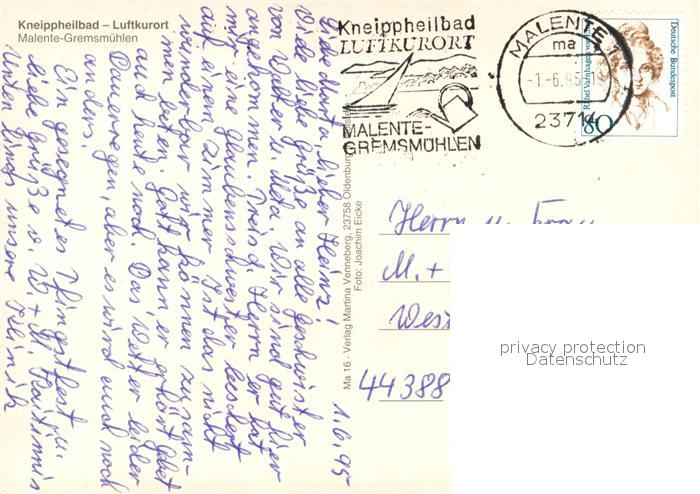 Kneippheilbad – Luftkurort
Malente-Gremsmühlen
1.6.95
Liebe Meta, lieber Heinz!
Viele liebe Grüße an alle Geschwister
von Walter u. Meta. Wir sind gut hier
angekommen. Preis d. Herrn er hat
mir eine Glaubensschwester beschert
auf einem Zimmer. Ist das nicht
wunderbar wir können zusam-
men beten. Gott kann er erhört Gebet
auch heute noch. Das Wetter leider
Dauerregen, aber es wird auch noch
anders.
Ein gesegnetes Pfingstfest u.
liebe Grüße v. W. + M.
Unten links unsere Klinik
Ma 16 · Verlag Martina Venneberg, 23758 Oldenburg
Foto: Joachim Eicke
Kneippheilbad
LUFTKURORT
MALENTE-
GREMSMÜHLEN
MALENTE 1
ma
-1.-6.95-1
23714
Deutsche Bundespost
Rahel Varnhagen von Ense
80
Herrn u. Frau
M. +
Wes
44388
privacy protection
Datenschutz